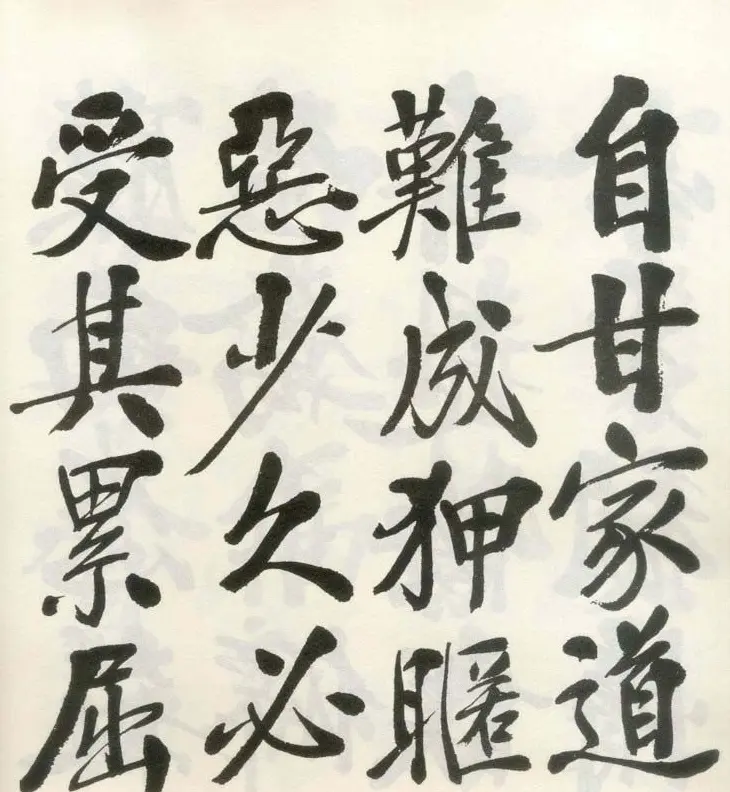 自甘家道
難成狎暱
惡少久必
受其累屈